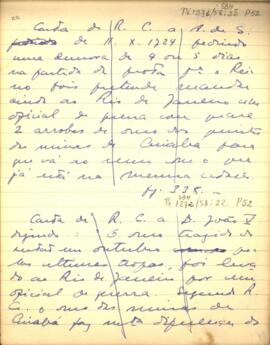 22
Ti 1236/58:22 P52
Carta de R. C. a P. de S.
de 11. X. 1724 pedindo
uma demora de 4 ou 5 dias
na partida da frota p.ª o Rei-
no pois pretende mandar
ainda ao Rio de Janeiro um
oficial de guerra com quase
2 arrobas de ouro dos quintos
das minas de Cuiabá para
que vá ao menos o que
já está na mesma cidade
H. 338. –
Carta de R. C. a D. João V
dizendo: O ouro trazido do
em outubro pe-
las ultimas tropas, foi leva-
do ao Rio de Janeiro por um
oficial de guerra. Segundo R.
C. o ouro das minas de
Cuiabá faz muita diferença do